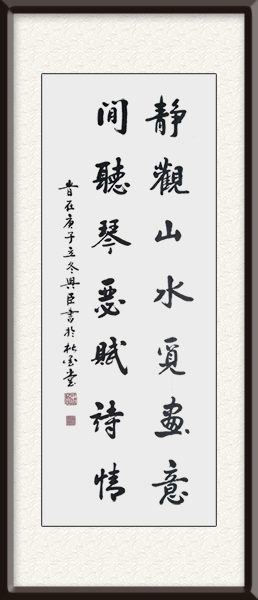 靜觀山水覓畫意
間聽琴瑟賦詩情
昔在庚子立冬興臣書於松堂